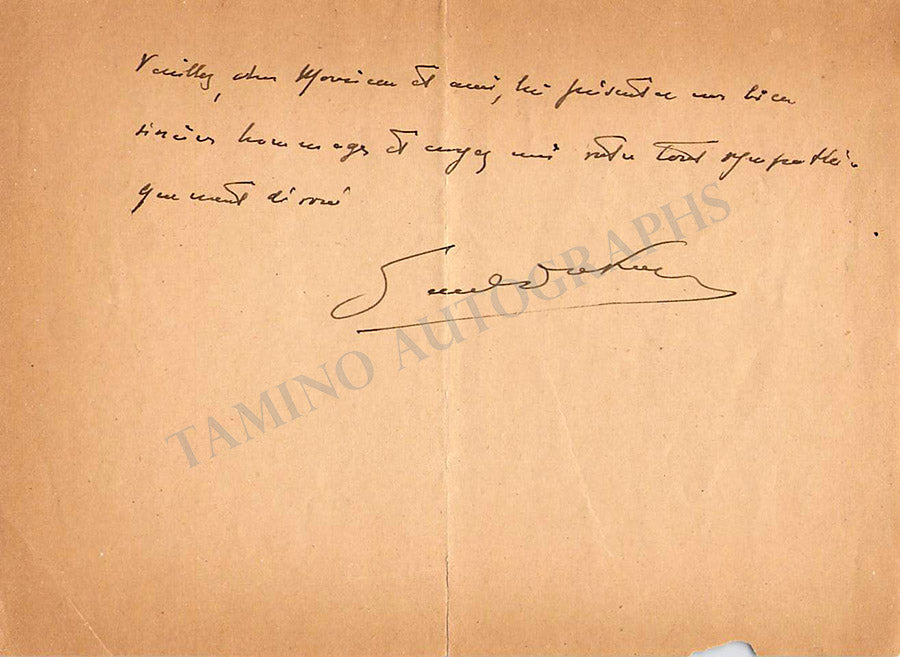 Veuillez, cher Monsieur et ami, lui présenter mes bien
sincères hommages et croyez moi votre tout sympathi-
quement dévoué
Paul Dukas
TAMINO AUTOGRAPHS